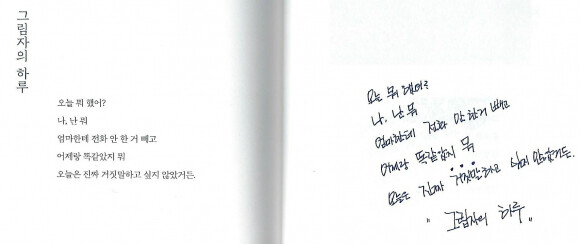 그림자의 하루
오늘 뭐 했어?
나, 난 뭐
엄마한테 전화 안 한 거 빼고
어제랑 똑같았지 뭐
오늘은 진짜 거짓말하고 싶지 않았거든.
오늘 뭐 했어?
나, 난 뭐
엄마한테 전화 안 한 거 빼고
어제랑 똑같았지 뭐
오늘은 진짜 거짓말하고 싶지 않았거든.
"그림자의 하루"